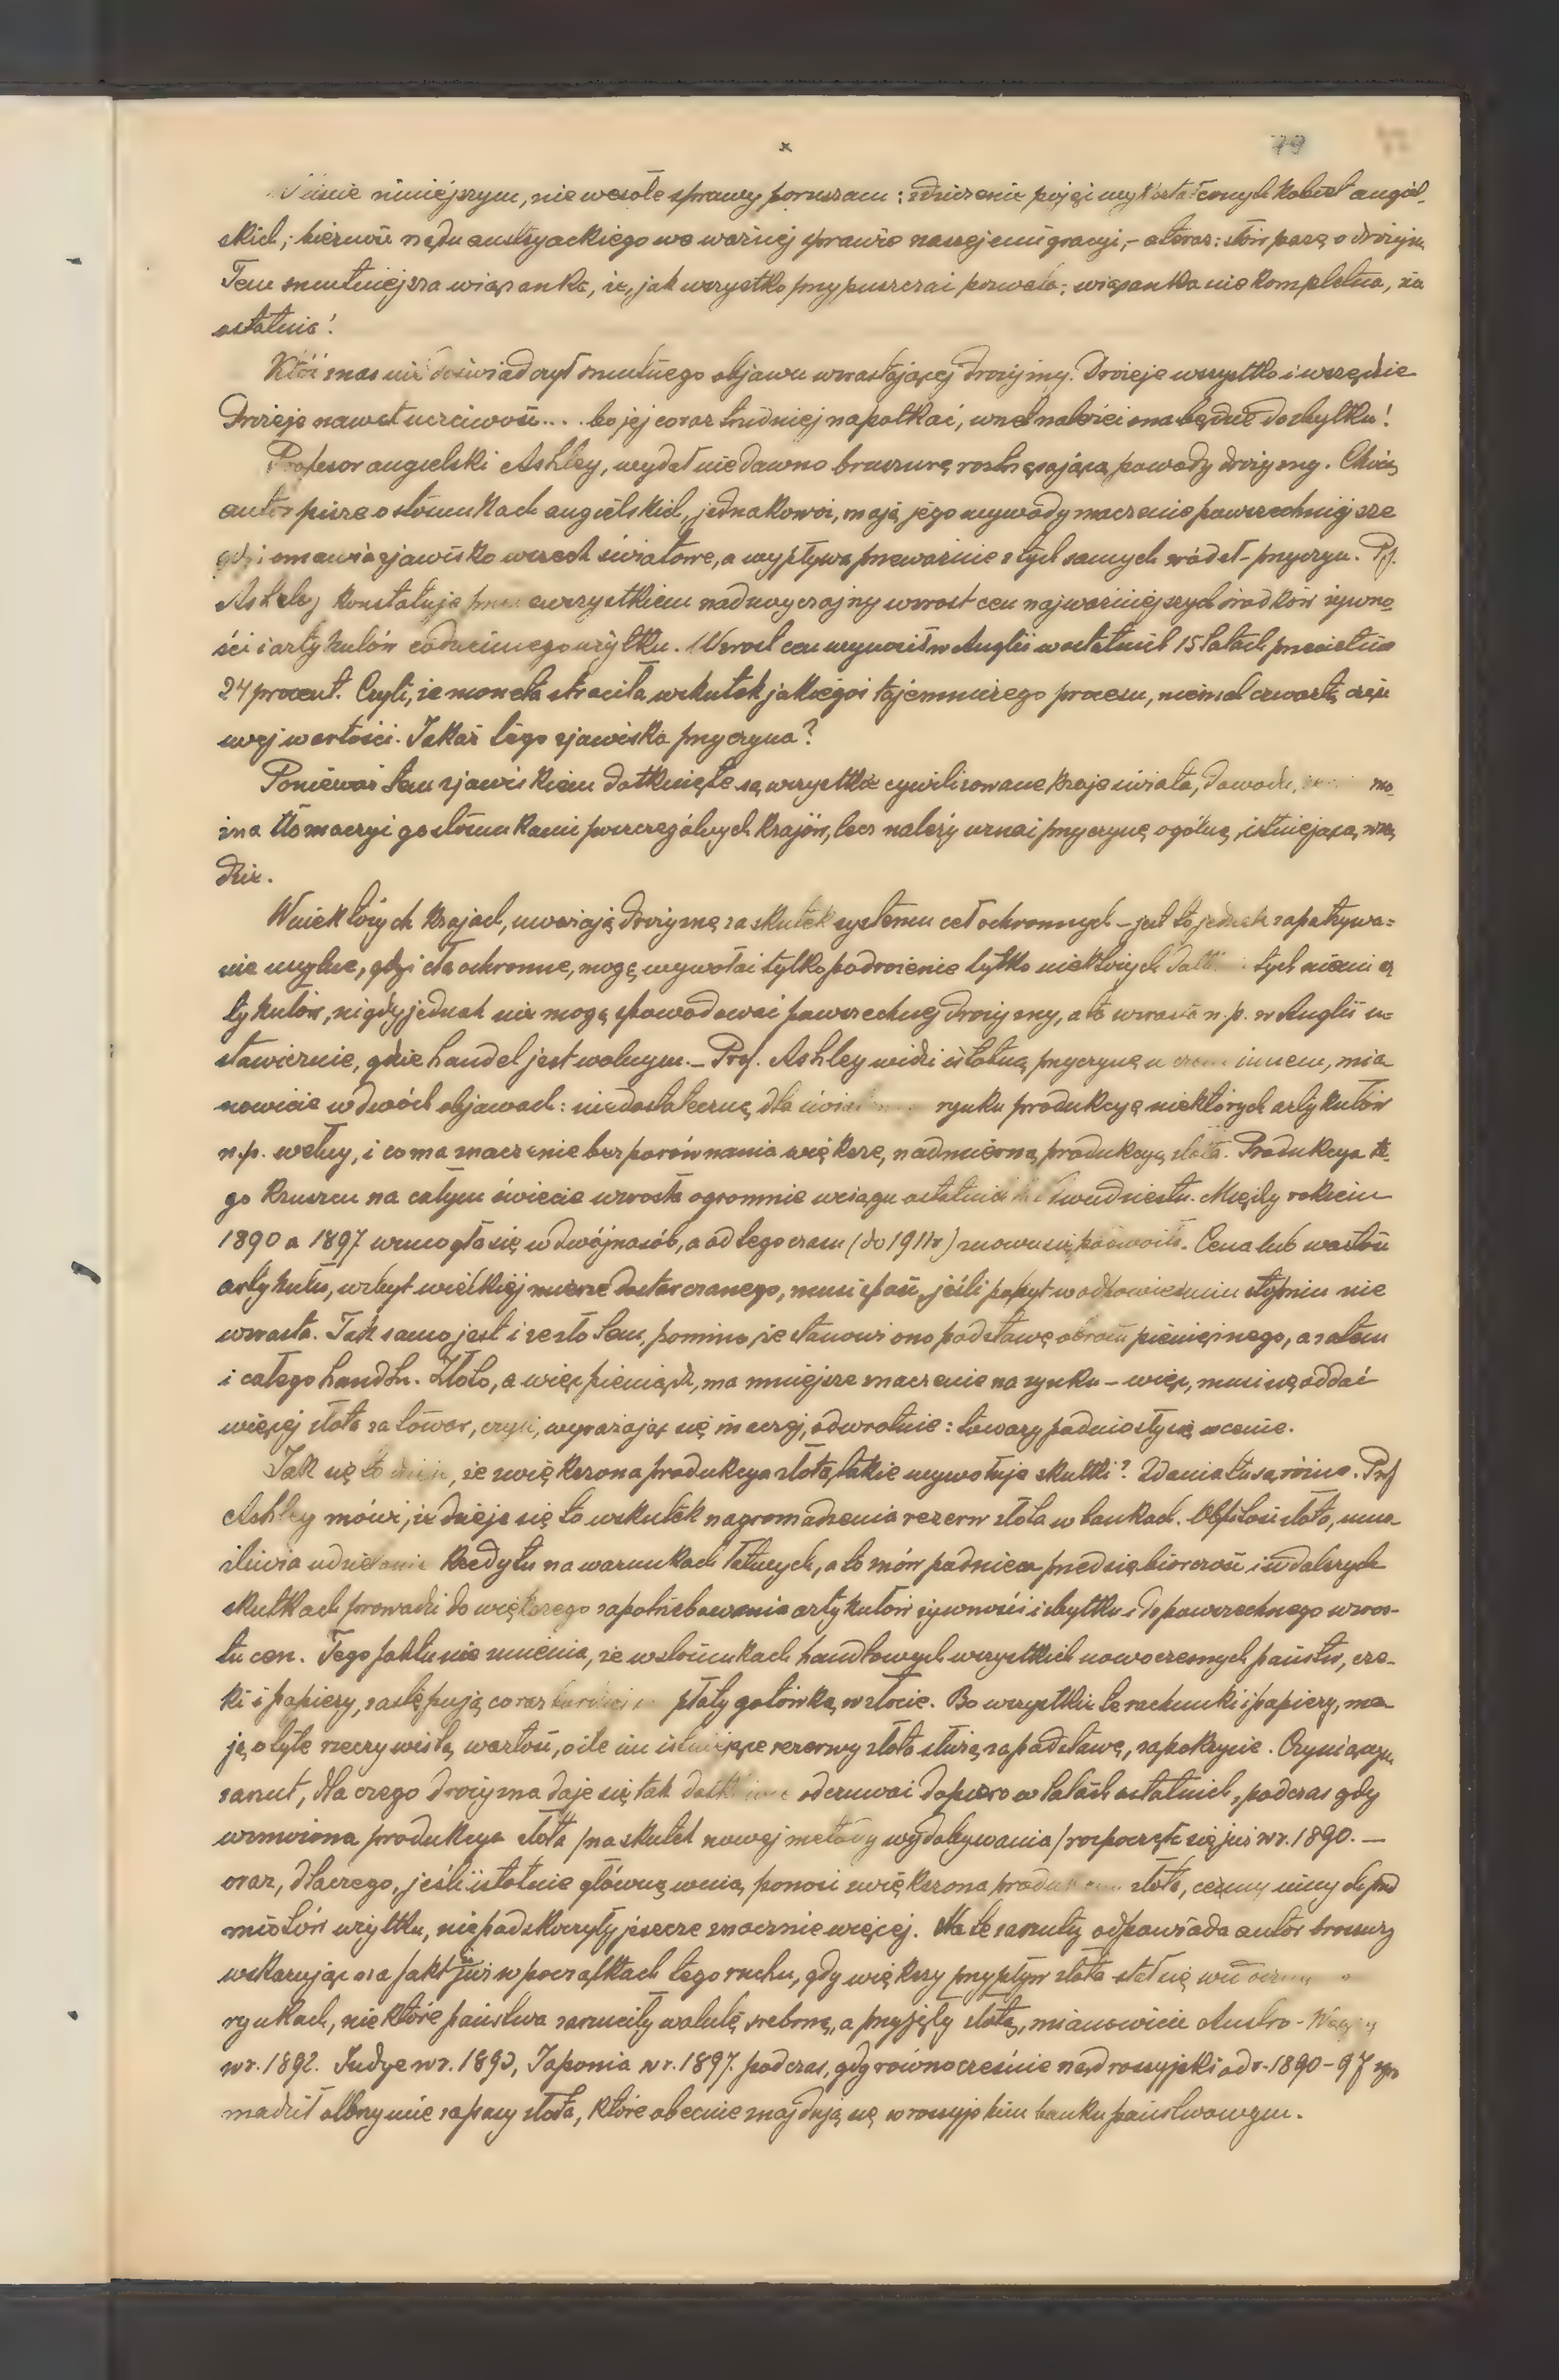 x
79
niniejszym, nie wesołe sprawy poruszam: zdziczenie pojęć wykształconych kobiet angiel-
skich; bierność rządu austryackiego we ważnej sprawie naszej emigracyi, – a teraz: słów parę o drożyźn
Tem smutniejsza wiązanka, że, jak wszystko przypuszczać pozwala; wiązanka nie kompletna, nie
ostatnia!
Któż z nas nie doświadczył smutnego objawu wzrastającej drożyzny. Drożeje wszystko i wszędzie
Drożeje nawet uczciwość... bo jej coraz trudniej napotkać, wnet należeć ona będzie do zbytku!
Profesor angielski Ashley, wydał niedawno broszurę roztrząsającą powody drożyzny. Chociaż
autor pisze o stosunkach angielskich, jednakowoż, mają jego wywody znaczenie powszechniejsze
gdyż omawia zjawisko wszech światowe, a wypływa przeważnie z tych samych źródeł – przyczyn. Prf.
Ashley konstatuje przedewszystkiem nadzwyczajny wzrost cen najważniejszych środków żywno-
ści i artykułów codziennego użytku. Wzrost cen wynosił w Anglii w ostatnich 15 latach przeciętnie
24 procent. Czyli, że moneta straciła wskutek jakiegoś tajemniczego procesu, niemal czwartą część
swej wartości. Jakaż tego zjawiska przyczyna?
Ponieważ tem zjawiskiem dotknięte są wszystkie cywilizowane kraje świata, dowodu, mo-
żna tłomaczyć go stosunkami poszczególnych krajów, lecz należy uznać przyczynę ogólną, istniejącą wszę
dzie.
W niektórych krajach, uważają drożyznę za skutek systemu ceł ochronnych – jest to jednak zapatrywa=
nie mylne, gdyż cła ochronne, mogą wywołać tylko podrożenie tylko niektórych tych niemi ar
tykułów, nigdy jednak nie mogą spowodować powszechnej drożyzny, a ta wzrasta n.p. w Anglii u-
stawicznie, gdzie handel jest wolnym. – Prof. Ashley widzi istotną przyczynę w czem innem, mia
nowicie w dwóch objawach: niedostateczną dla rynku produkcyę niektórych artykułów
n.p. wełny, i co ma znaczenie bez porównania większe, nadmierną produkcyą złota. Produkcya te-
go kruszcu na całym świecie wzrosła ogromnie w ciągu ostatnich lat dwudziestu. Między rokiem
1890 a 1897 wzmogła się w dwójnasób, a od tego czasu (do 1911r) znowu się podwoiła. Cena lub wartość
artykułu, w zbyt wielkiej mierze dostarczanego, musi spaść, jeśli popyt w odpowiednim stopniu nie
wzrasta. Tak samo jest i ze złotem, pomimo, że stanowi ono podstawę obrotu pieniężnego, a zatem
i całego handlu. Złoto, a więc pieniądz, ma mniejsze znaczenie na rynku – więc, musi się oddać
więcej złota za towar, czyli, wyrażając się inaczej, odwrotnie: towary podniosły się w cenie.
Jak się to dzieje, że zwiększona produkcya złota, takie wywołuje skutki? Zdania tu są różne. Prof
Ashley mówi, że dzieje się to wskutek nagromadzenia rezerw złota w bankach. Obfitość złota, umo-
żliwia udzielanie kredytu na warunkach łatwych, a to znów podnieca przedsiębiorczość i w dalszych
skutkach prowadzi do większego zapotrzebowania artykułów żywności i zbytku i do powszechnego wzros-
tu cen. Tego faktu nie zmienia, że w stosunkach handlowych wszystkich nowoczesnych państw, cze-
ki i papiery, zastępują coraz bardziej płaty gotówką w złocie. Bo wszystkie te rachunki i papiery, ma
ją o tyle rzeczywistą wartość, o ile im istniejące rezerwy złota służą za podstawę, za pokrycie. Czynią czę.
zarzut, dla czego drożyzna daje się tak dotkliwie odczuwać dopiero w latach ostatnich, podczas gdy
wzmożona produkcya złota /na skutek nowej metody wydobywania/ rozpoczęła się już w r. 1890. –
oraz, dlaczego, jeśli istotnie główną winę ponosi zwiększona produkcya złota, ceny innych przed
miotów użytku, nie podskoczyły jeszcze znacznie więcej. Na te zarzuty odpowiada autor broszury
wskazując na fakt iż już w początkach tego ruchu, gdy większy przypływ złota stał się widoczny
rynkach, niektóre państwa zarzuciły walutę srebrną, a przyjęły złotą, mianowicie Austro – Węgry
w r. 1892. Indye w r. 1893, Japonia w r. 1897. podczas, gdy równocześnie rząd rossyjski od r. 1890–97 gro
madził olbrzymie zapasy złota, które obecnie znajdują się w rossyjskim banku państwowym.